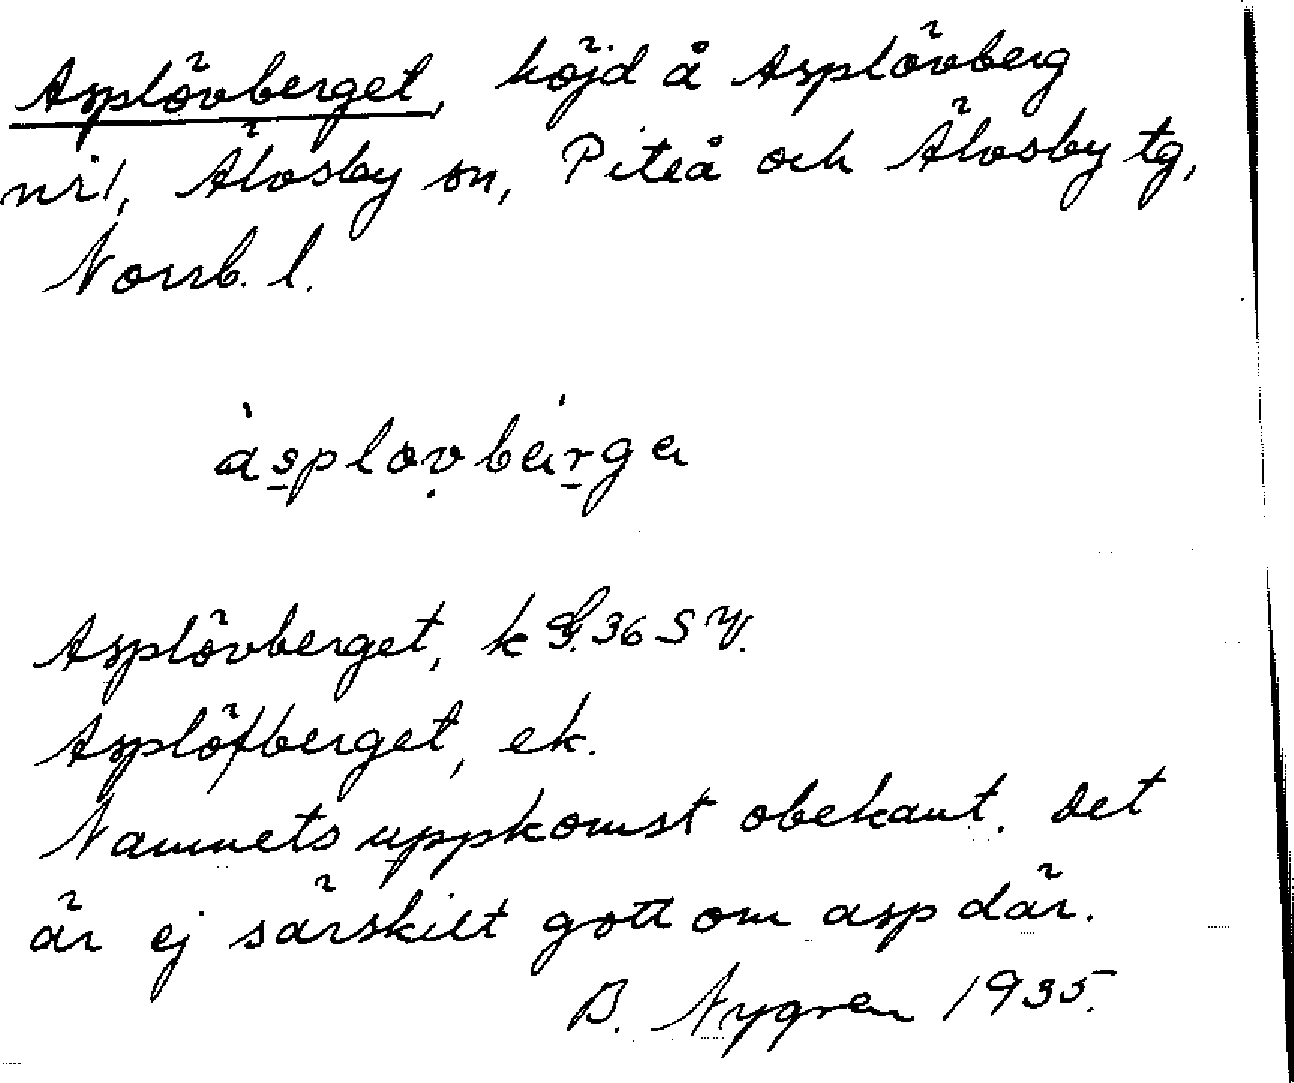 Asplövberget, höjd å Asplövberg
nr 1, Älvsby sn, Piteå och Älvsby tg,
Norrb. l.
asplovbärga
Asplövberget, k G.36 SV.
Asplöfberget, ek.
Namnets uppkomst obekant. Det
är ej särskilt gott om asp där.
B. Nygren 1935.